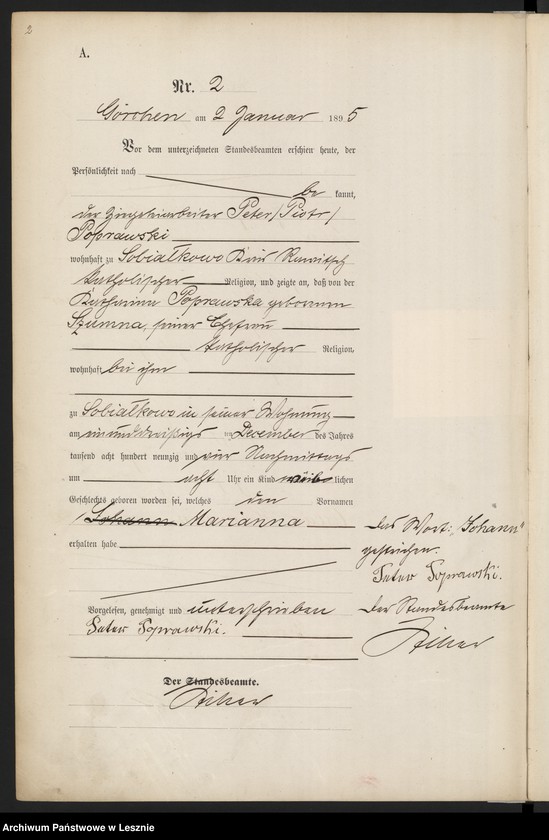 2
A.
Nr. 2
Görchen am 2 Januar 1895
Vor dem unterzeichneten Standesbeamten erschien heute, der
Persönlichkeit nach
be kannt,
der Ziegeleiarbeiter Peter /Piotr/
Poprawski
wohnhaft zu Sobiałkowo Kreis Rawitsch
katholischer Religion, und zeigte an, daß von der
Katharina Poprawska geborenen
Szumna, seiner Ehefrau
katholischer Religion,
wohnhaft bei ihm
zu Sobiałkowo in seiner Wohnung
am einunddreißigs ten December des Jahres
tausend acht hundert neunzig und vier Nachmittags
um acht Uhr ein Kind weib lichen
Geschlechts geboren worden sei, welches den Vornamen
Johann Marianna
erhalten habe
Das Wort: „Johann"
gestrichen.
Peter Poprawski.
Der Standesbeamte
Vorgelesen, genehmigt und unterschrieben
Peter Poprawski.
Der Standesbeamte.
Archiwum Państwowe w Lesznie